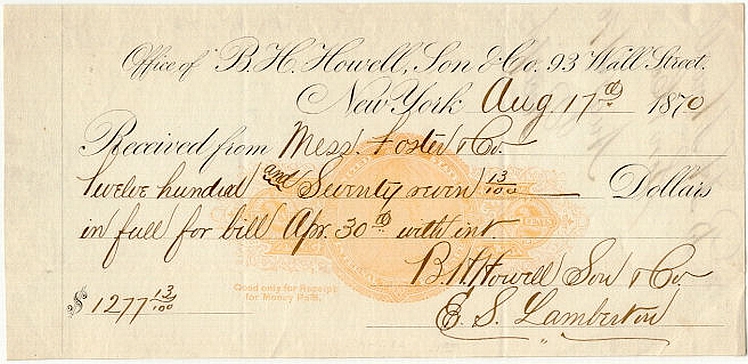 Office of B. H. Howell, Son & Co. 93 Wall Street.
New York Aug 17th 1870
Received from Mess. Foster & Co.
Twelve hundred and Seventy seven 13/100 Dollars
in full for bill Apr. 30th with int.
B. H. Howell Son & Co
$ 1277 13/100
E. S. Lamberton
Good only for Receipt
for Money Paid.
CENTS